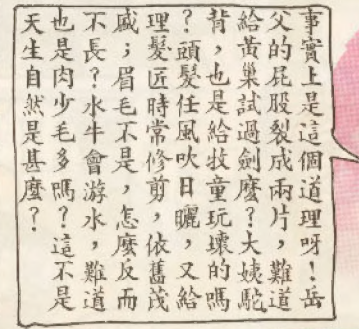 事實上是這個道理呀！岳
父的屁股裂成兩片，難道
給黃巢試過劍麼？大姨駝
背，也是給牧童玩壞的嗎
？頭髮任風吹日曬，又給
理髮匠時常修剪，依舊茂
盛；眉毛不是，怎麼反而
不長？水牛會游水，難道
也是肉少毛多嗎？這不是
天生自然是甚麼？